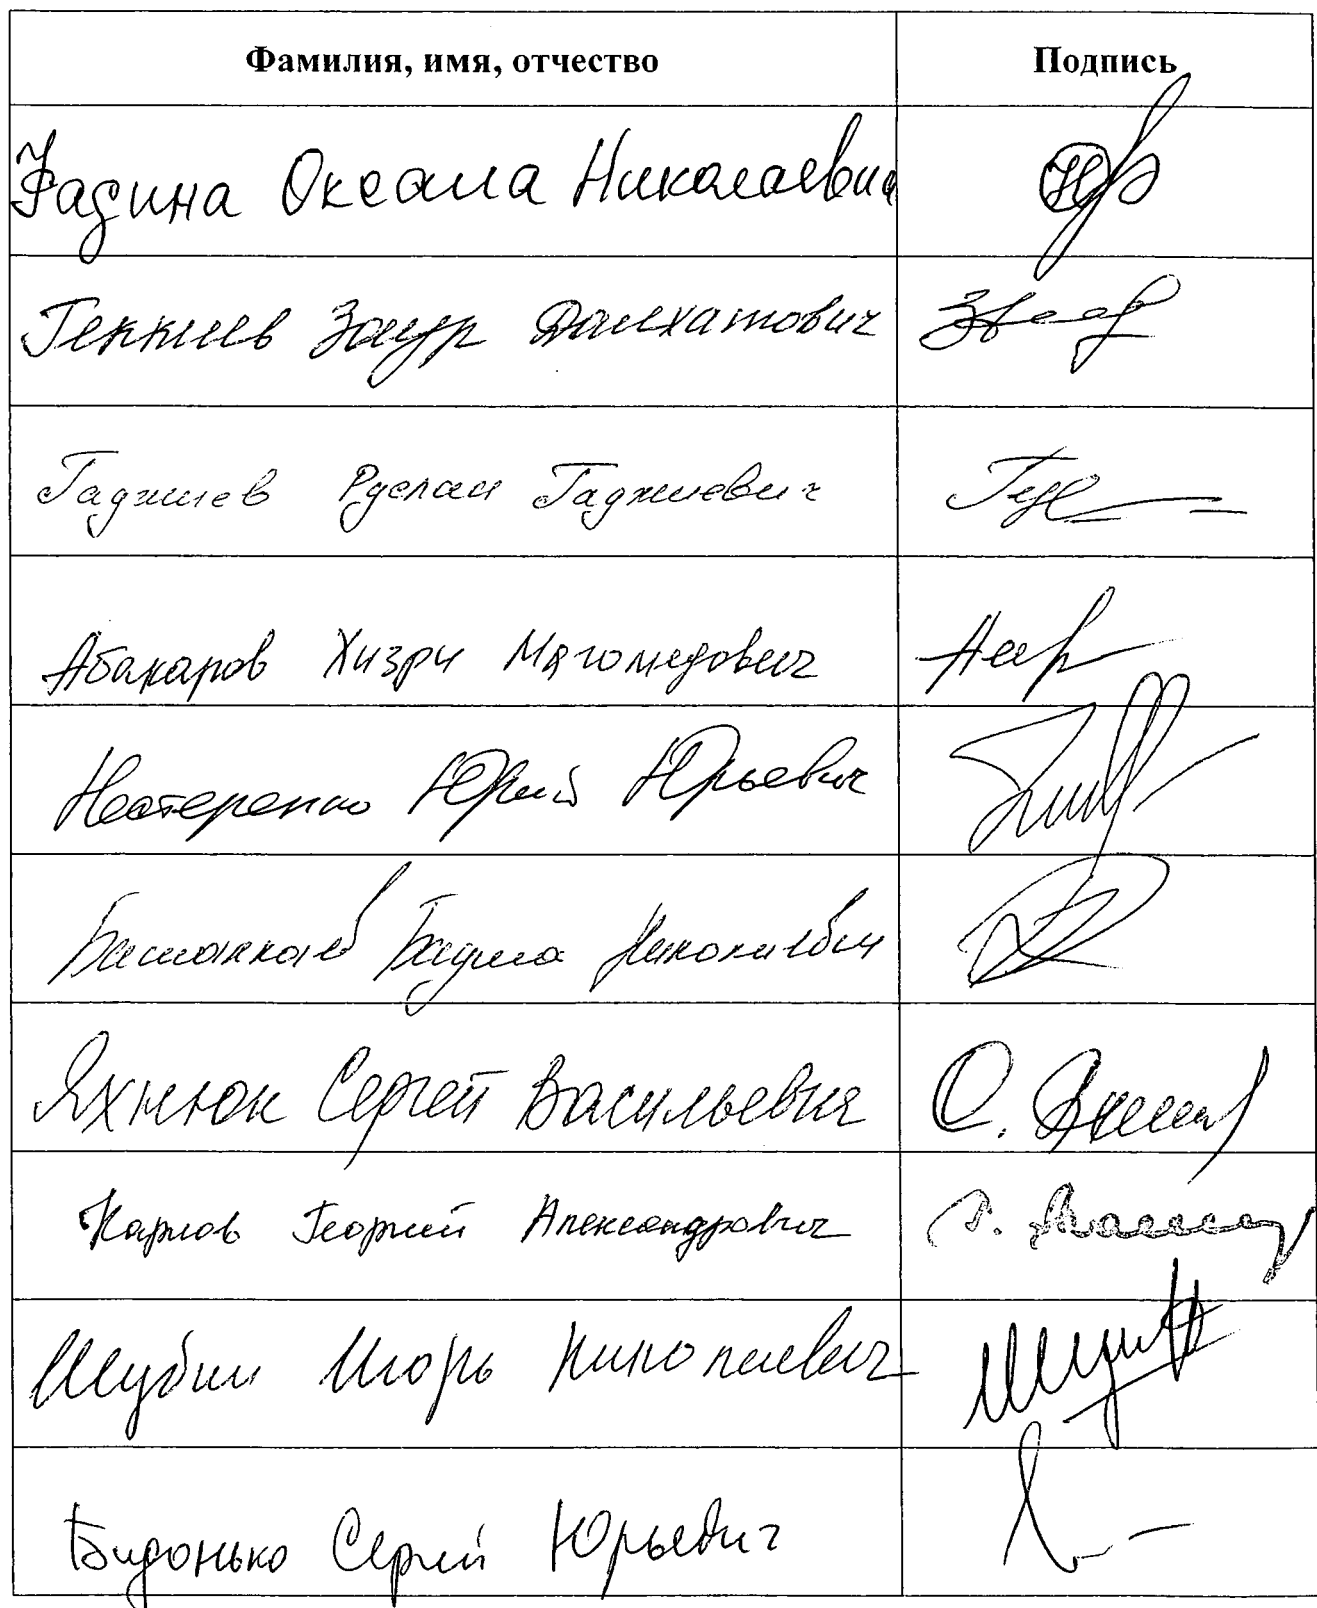 Фамилия, имя, отчество Подпись
Фадина Оксана Николаевна
Геккиев Заур Далхатович
Гаджиев Руслан Гаджиевич
Абакаров Хизри Магомедович
Нестеренко Юрий Юрьевич
Башанкаев Бадма Николаевич
Яхнюк Сергей Васильевич
Карлов Георгий Александрович
Шубин Игорь Николаевич
Бидонько Сергей Юрьевич